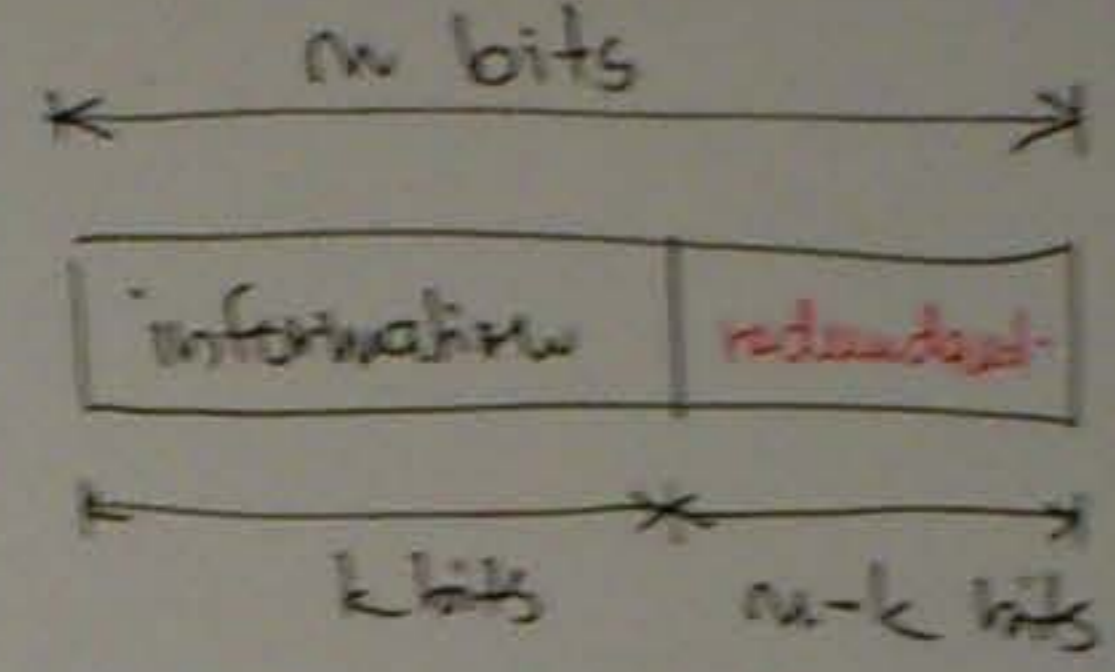 n bits
information redundant
k bits n-k bits